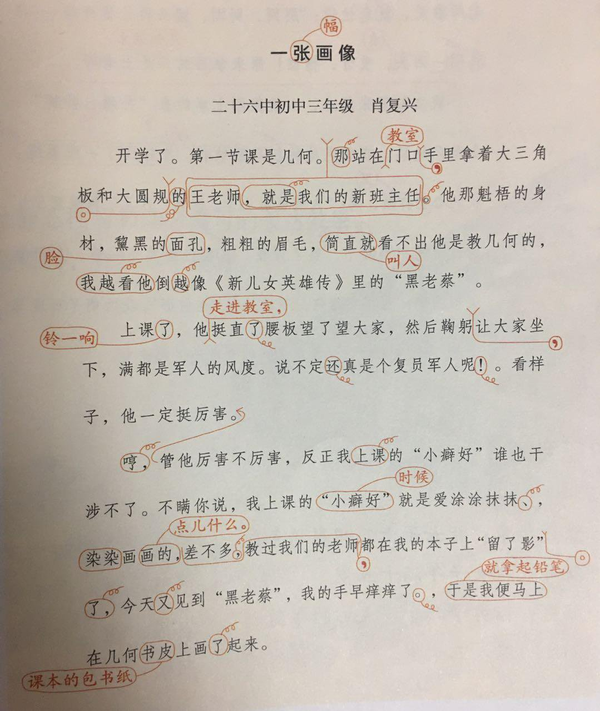 幅
一张画像
二十六中初中三年级 肖复兴
教室
开学了。第一节课是几何。那站在门口手里拿着大三角
板和大圆规的王老师，就是我们的新班主任。他那魁梧的身
材，黧黑的面孔，粗粗的眉毛，简直就看不出他是教几何的，
脸
叫人
我越看他倒越像《新儿女英雄传》里的“黑老蔡”。
走进教室，
铃一响
上课了，他挺直了腰板望了望大家，然后鞠躬让大家坐
下，满都是军人的风度。说不定还真是个复员军人呢！。看样
子，他一定挺厉害。
哼，管他厉害不厉害，反正我上课的“小癖好”谁也干
时候
涉不了。不瞒你说，我上课的“小癖好”就是爱涂涂抹抹、，
点儿什么。
染染画画的，差不多，教过我们的老师都在我的本子上“留了影”
就拿起铅笔
了，今天又见到“黑老蔡”，我的手早痒痒了。，于是我便马上
在几何书皮上画了起来。
课本的包书纸